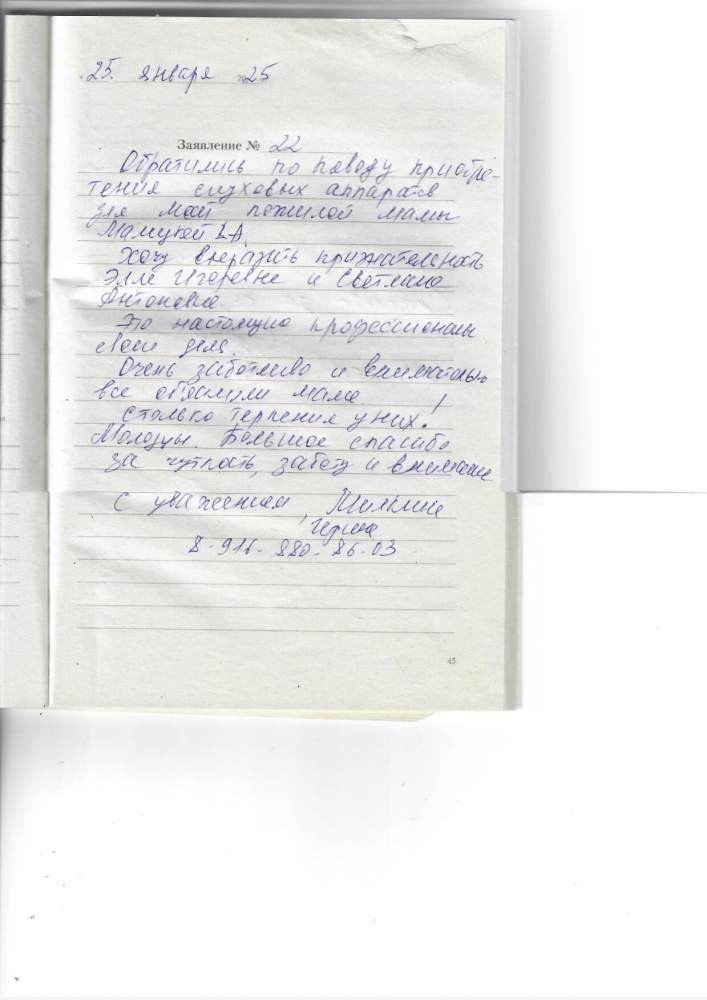 25. января 2025
Заявление № 22
Обратились по поводу приобре-
тения слуховых аппаратов
для моей пожилой мамы
Хочу выразить признательность
Элле Игоревне и Светлане
Антоновне
Это настоящие профессионалы
своего дела.
Очень заботливо и внимательно
все объяснили маме
столько терпения у них!
Молодцы. Большое спасибо
за чуткость, заботу и внимание
С уважением,
8-916-880-86-03
45